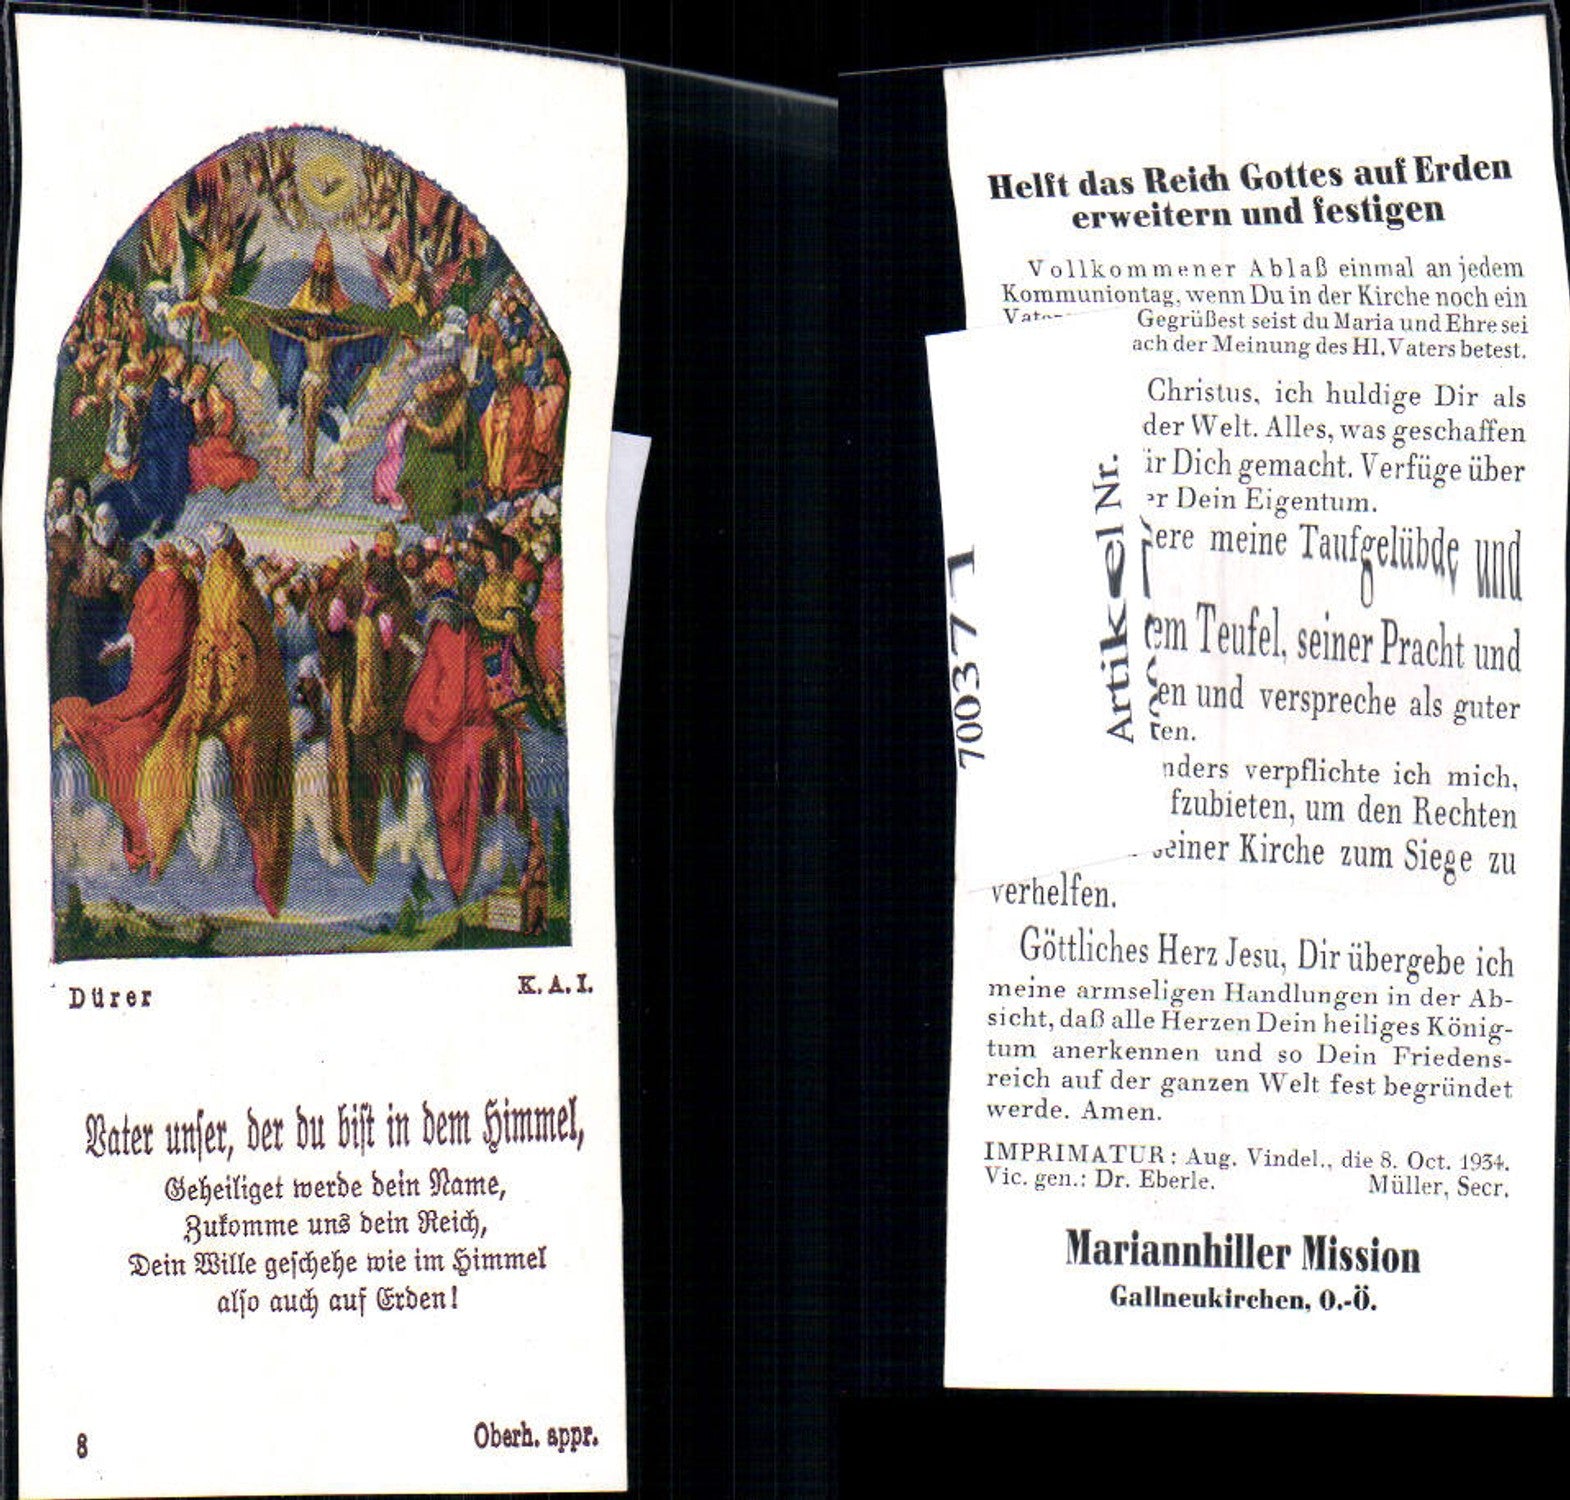 Dürer
K. A. I.
Vater unser, der du bist in dem Himmel,
Geheiliget werde dein Name,
Zukomme uns dein Reich,
Dein Wille geschehe wie im Himmel
also auch auf Erden!
8
Oberh. appr.
Helft das Reich Gottes auf Erden
erweitern und festigen
Vollkommener Ablaß einmal an jedem
Kommuniontag, wenn Du in der Kirche noch ein
Gegrüßest seist du Maria und Ehre sei
ach der Meinung des Hl. Vaters betest.
Christus, ich huldige Dir als
der Welt. Alles, was geschaffen
ir Dich gemacht. Verfüge über
r Dein Eigentum.
ere meine Taufgelübde und
em Teufel, seiner Pracht und
en und verspreche als guter
ten.
nders verpflichte ich mich,
fzubieten, um den Rechten
einer Kirche zum Siege zu
verhelfen.
Göttliches Herz Jesu, Dir übergebe ich
meine armseligen Handlungen in der Ab-
sicht, daß alle Herzen Dein heiliges König-
tum anerkennen und so Dein Friedens-
reich auf der ganzen Welt fest begründet
werde. Amen.
IMPRIMATUR: Aug. Vindel., die 8. Oct. 1934.
Vic. gen.: Dr. Eberle. Müller, Secr.
Mariannhiller Mission
Gallneukirchen, O.-Ö.
700371
Artikel Nr.